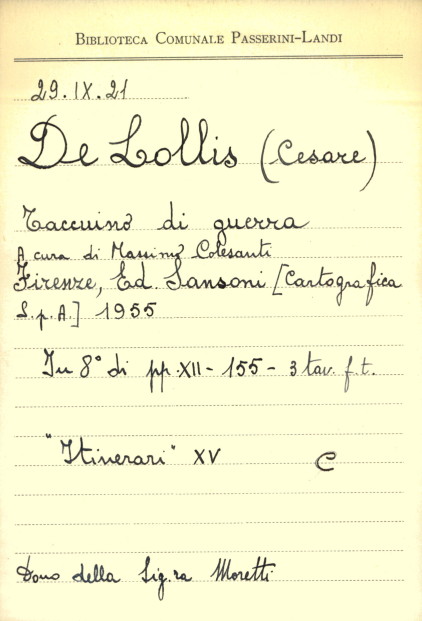 BIBLIOTECA COMUNALE PASSERINI-LANDI
29.IX.21
De Lollis (Cesare)
Taccuino di guerra
A cura di Massimo Colesanti
Firenze, Ed. Sansoni [Cartografica
S.p.A.] 1955
In 8° di pp. XII - 155 - 3 tav. f.t.
"Itinerari" XV C
Dono della Sig.ra Moretti